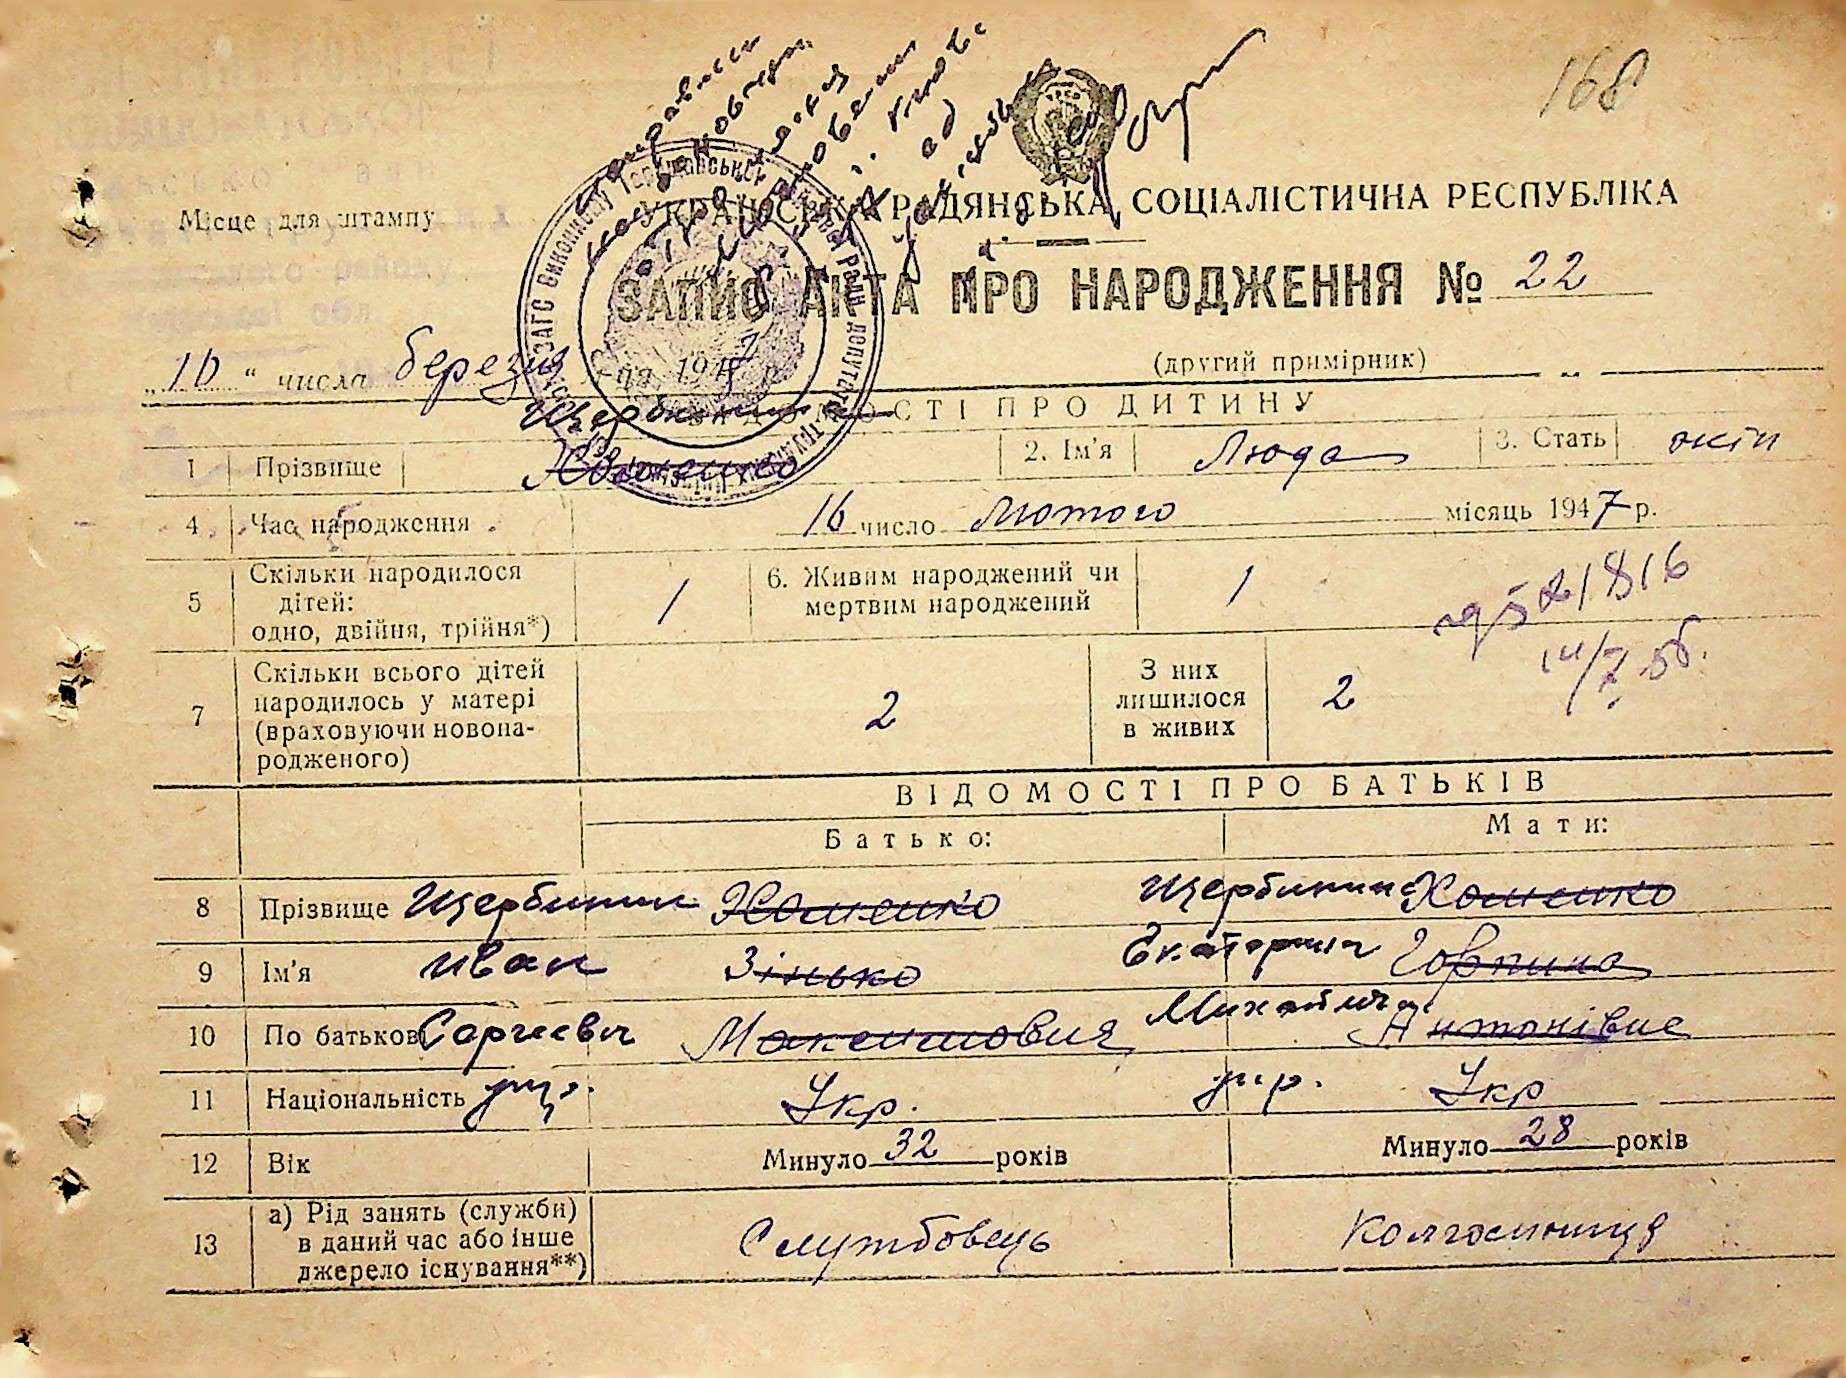 168
Місце для штампу
УКРАЇНСЬКА РАДЯНСЬКА СОЦІАЛІСТИЧНА РЕСПУБЛІКА
ЗАПИС АКТА ПРО НАРОДЖЕННЯ № 22
„16“ числа березня м-ця 1947 р.
(другий примірник)
ВІДОМОСТІ ПРО ДИТИНУ
Щербинин
1 Прізвище Хоменко 2. Ім'я Люда 3. Стать жін
4 Час народження 16 число Лютого місяць 1947 р.
5 Скільки народилося дітей: одно, двійня, трійня*) 1 6. Живим народжений чи мертвим народжений 1
521816
14/7.56.
7 Скільки всього дітей народилось у матері (враховуючи новонародженого) 2 З них лишилося в живих 2
ВІДОМОСТІ ПРО БАТЬКІВ
Батько: Мати:
8 Прізвище Щербинин Хоменко Щербинина Хоменко
9 Ім'я Иван Зінько Екатерина Горпина
10 По батькові Сергеевич Максимовия Михайловна Антонівне
11 Національність укр. Укр. укр. Укр
12 Вік Минуло 32 років Минуло 28 років
13 а) Рід занять (служби) в даний час або інше джерело існування**) Службовець Колгоспниця